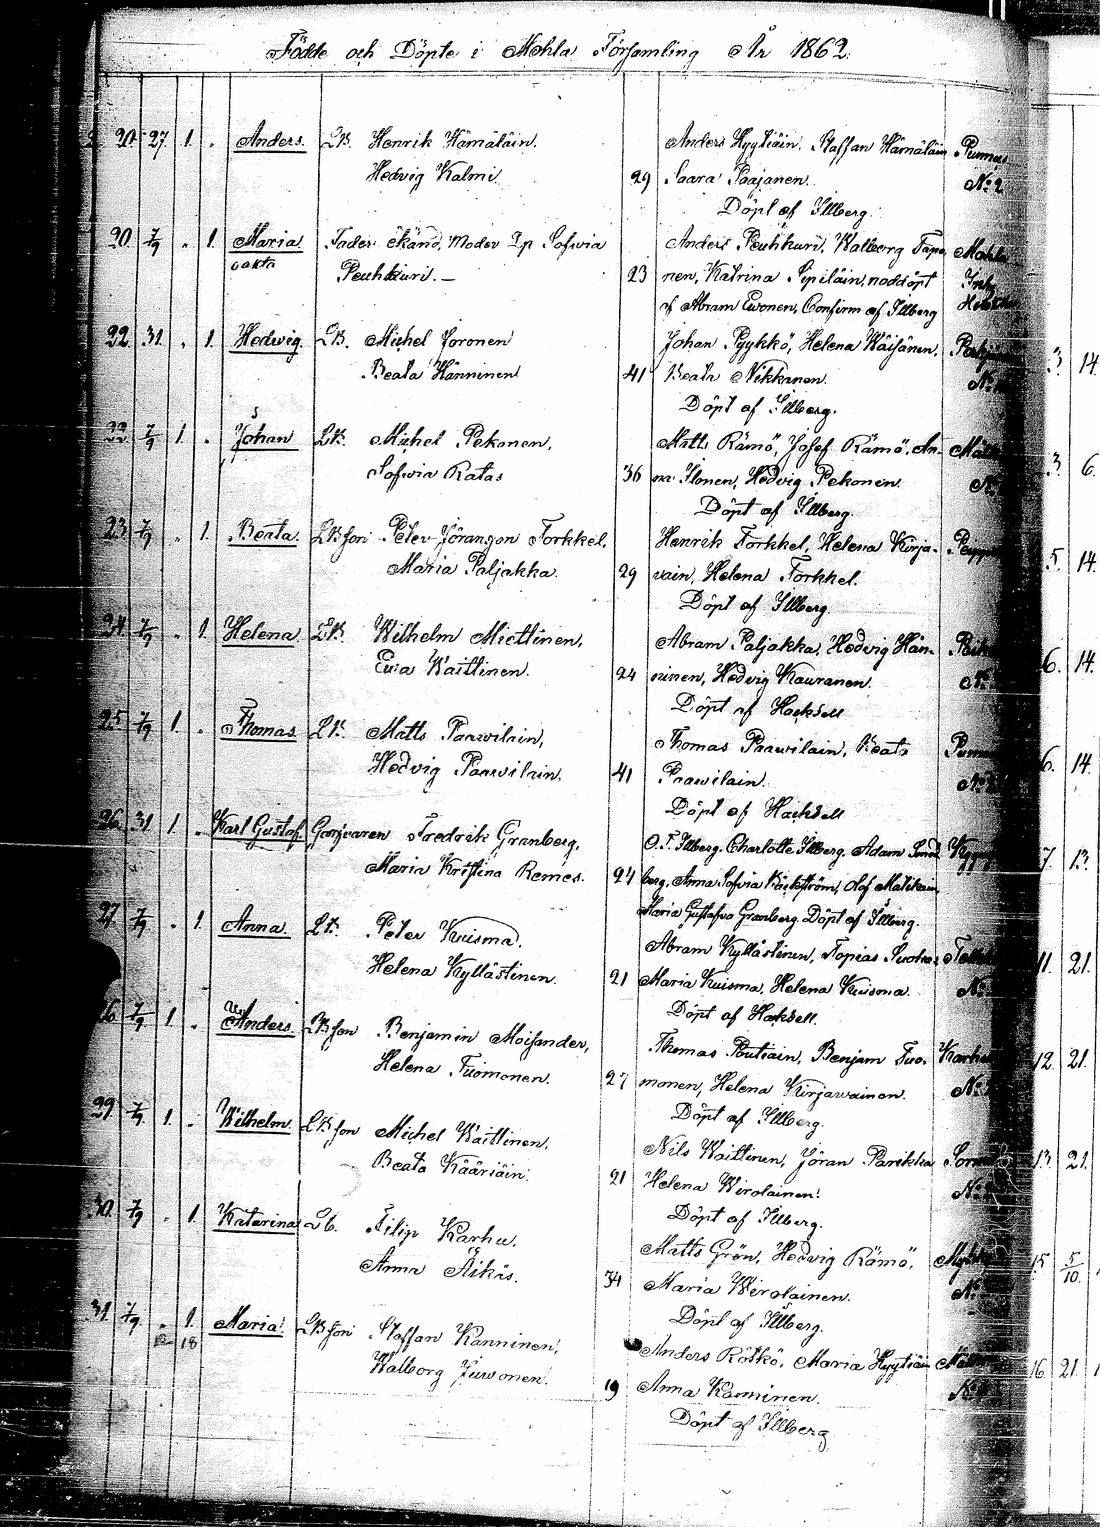 Födde och Döpte i Mohla Församling År 1862.
20 27 1 . Anders. LB. Henrik Hämäläin. Anders Hyytiäin. Staffan Hämäläin Punnus
Hedvig Kalmi 29 Saara Paajanen. No 2
Döpt af Illberg.
20 7/9 . 1. Maria Fader okänd, Moder Ip Sofwia Anders Peuhkuri, Walborg Tapo Mohla
oäkta Peuhkuri. — 23 nen, Katrina Sipiläin, nöddöpt
af Abram Ewonen, Confirm af Illberg
22. 31. . 1. Hedwig. LB. Michel Joronen Johan Pyykkö, Helena Wäisänen.
Beata Hänninen 41 Beata Nikkanen. 3. 14
Döpt af Illberg.
22 7/9 1. . Johan LB. Michel Pekonen, Matts Rämö, Josef Rämö, An-
Sofwia Ratas 36 na Ilonen, Hedvig Pekonen. 3. 6.
Döpt af Illberg.
23 7/9 . 1. Beata. LBson Peter Jöransson Torkkel, Henrik Torkkel, Helena Kirja-
Maria Paljakka. 29 vain, Helena Torkkel. 5. 14.
Döpt af Illberg.
24 7/9 . 1. Helena LB. Wilhelm Miettinen, Abram Paljakka, Hedvig Hän-
Eva Waittinen. 24 ninen, Hedvig Kauranen. 6. 14.
Döpt af Hacksell
25 7/9 1. . Thomas LB. Matts Paawilain, Thomas Paawilain, Beata
Hedvig Paawilain. 41 Paawilain. 6. 14.
Döpt af Hacksell
26. 31. 1. . Karl Gustaf. Garfvaren Fredrik Granberg, O. F. Illberg. Charlotte Illberg. Adam Sand
Maria Kristina Remes. 24 berg, Anna Sofvia Bäckström, Olof Matikain 7. 13.
Maria Gustafva Granberg Döpt af Illberg.
27 7/9 . 1. Anna LB. Peter Kuisma. Abram Kyllästinen, Topias Suoka
Helena Kyllästinen 21 Maria Kuisma, Helena Kuisma. 11. 21.
Döpt af Hacksell.
26 7/9 1. . Anders. LBson Benjamin Moisander, Thomas Poutiain, Benjam Tuo-
Helena Tuomonen. 27 monen, Helena Kirjawainen. 12. 21.
Döpt af Illberg.
29 7/9. 1. . Wilhelm. LBson Michel Waittinen, Nils Waittinen, Jöran Parikka
Beata Kääriäin. 21 Helena Wirolainen. 13. 21.
Döpt af Illberg.
30. 7/9 . 1. Katarina Lb. Filip Karhu. Matts Grön, Hedvig Rämö,
Anna Äikäs. 34 Maria Wirolainen. 15 5/10.
Döpt af Illberg.
31. 7/9. . 1. Maria. LBson Staffan Kanninen, Anders Rötkö, Maria Hyytiäin
12 18 Walborg Juwonen. 19 Anna Kanninen. 16. 21.
Döpt af Illberg